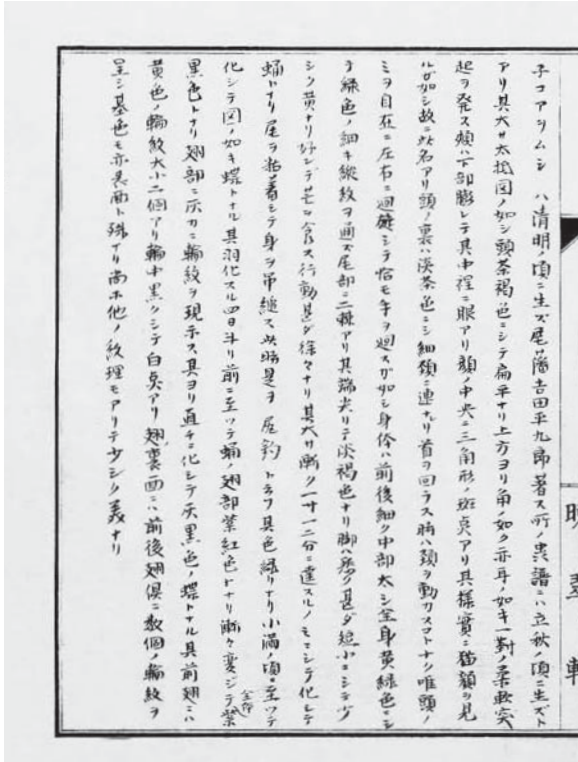 子コアシムシ ハ清明ノ頃ニ生ズ尾藩吉田平九郎著ス所ノ虫譜ニハ立秋ノ頃ニ生ズト
アリ其大サ太抵図ノ如シ頭茶褐色ニシテ扁平ナリ上方ヨリ角ノ如ク亦耳ノ如キ一對ノ柔軟突
起ヲ発ス頬ハ下部膨レテ其中程ニ眼アリ顔ノ中央ニ三角形ノ斑点アリ其様實ニ猫顔ヲ見
ルガ如シ故ニ此名アリ頭ノ裏ハ淡茶色ニシ細頚ニ連ナリ首ヲ回ラス時ハ頚ヲ動カスコトナク唯頭ノ
ミヲ自在ニ左右ニ廻転シテ恰モ牛ヲ廻スガ如シ身体ハ前後細ク中部太シ全身黄緑色ニシ
テ緑色ノ細キ縦紋ヲ通ズ尾部ニ二棘アリ其端尖リテ淡褐色ナリ脚ハ 甚ダ短小ニシテ少
シク黄ナリ好ンデ芒ヲ食ス行動甚ダ徐々ナリ其大サ漸ク一寸一二分ニ達スルノミニシテ化シテ
蛹トナリ尾ヲ粘着シテ身ヲ吊縋ス此時是ヲ 尾釣 ト云フ其色緑リナリ小満ノ頃ニ至ツテ全体
化シテ図ノ如キ蝶トナル其羽化スル四日斗リ前ニ至ツテ蛹ノ翅部紫紅色トナリ漸々変ジテ紫
黒色トナリ翅部ニ仄カニ輪紋ヲ現示ス其ヨリ直チニ化シテ灰黒色ノ蝶トナル其前翅ニハ
黄色ノ輪紋大小二個アリ輪中黒クシテ白点アリ翅裏面ニハ前後翅倶ニ数個ノ輪紋ヲ
呈シ基色モ亦表面ト殊ナリ尚ホ他ノ紋理モアリテ少シク美ナリ
軒